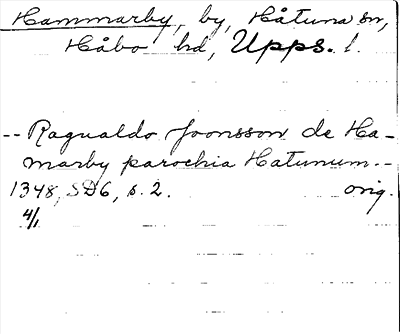 Hammarby, by, Håtuna sn,
Håbo hd, Upps. l.
-- Ragualdo Joonsson de Ha-
marby parochia Hatunum --
1348, SD6, s. 2. orig.
4/1